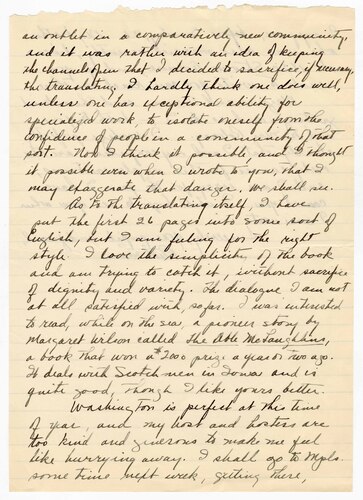 an outlet in a comparatively new community,
and it was rather with an idea of keeping
the channels open that I decided to sacrifice, if necessary,
the translating. I hardly think one does well,
unless one has exceptional ability for
specialized work, to isolate oneself from the
confidence of people in a community of that
sort. Now I think it possible, and I thought
it possible even when I wrote to you, that I
may exaggerate that danger. We shall see.
As to the translating itself, I have
put the first 26 pages into some sort of
English, but I am feeling for the right
style. I love the simplicity of the book
and am trying to catch it, without sacrifice
of dignity and variety. The dialogue I am not
at all satisfied with, so far. I was interested
to read, while on the sea, a pioneer story by
Margaret Wilson called The Able McLaughlins,
a book that won a $2000 prize a year or two ago.
It deals with Scotch men in Iowa and is
quite good, though I like yours better.
Washington is perfect at this time
of year, and my host and hostess are
too kind and generous to make me feel
like hurrying away. I shall go to Mpls.
some time next week, getting there,